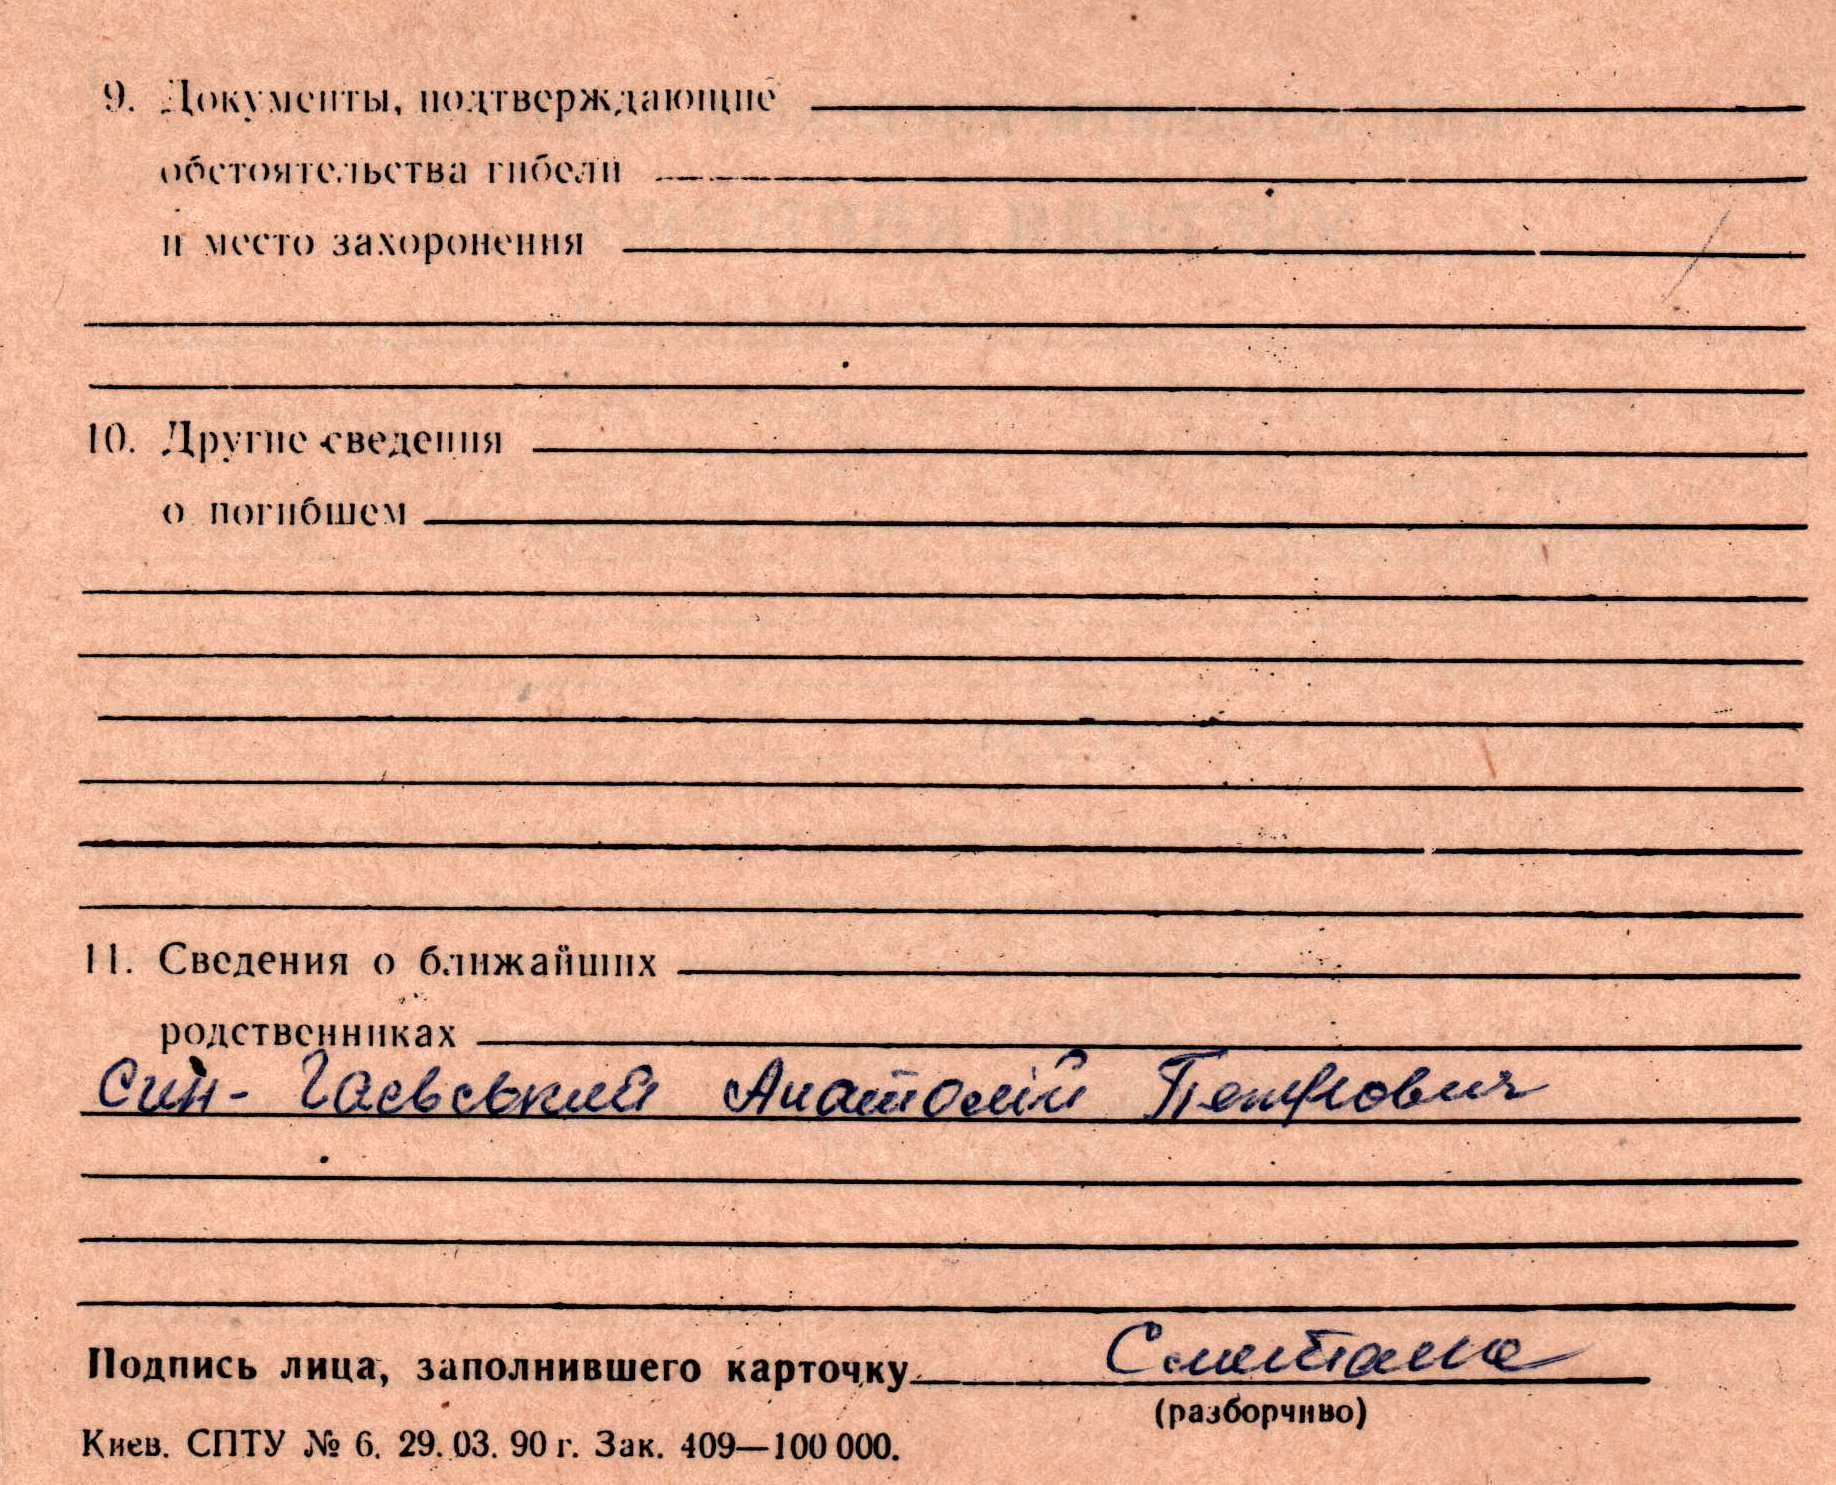 9. Документы, подтверждающие
обстоятельства гибели
и место захоронения
10. Другие сведения
о погибшем
11. Сведения о ближайших
родственниках
Син - Гаєвський Анатолій Петрович
Подпись лица, заполнившего карточку Сметана
(разборчиво)
Киев. СПТУ № 6. 29. 03. 90 г. Зак. 409—100 000.